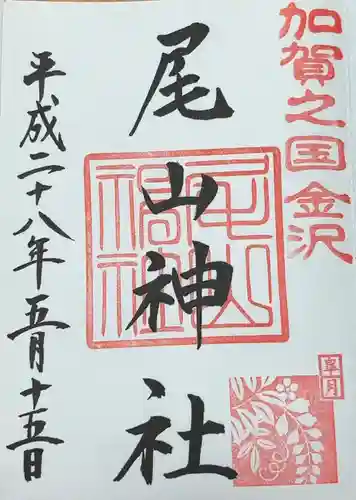 加賀之国金沢
尾山神社
尾山神社
皐月
平成二十八年五月十五日